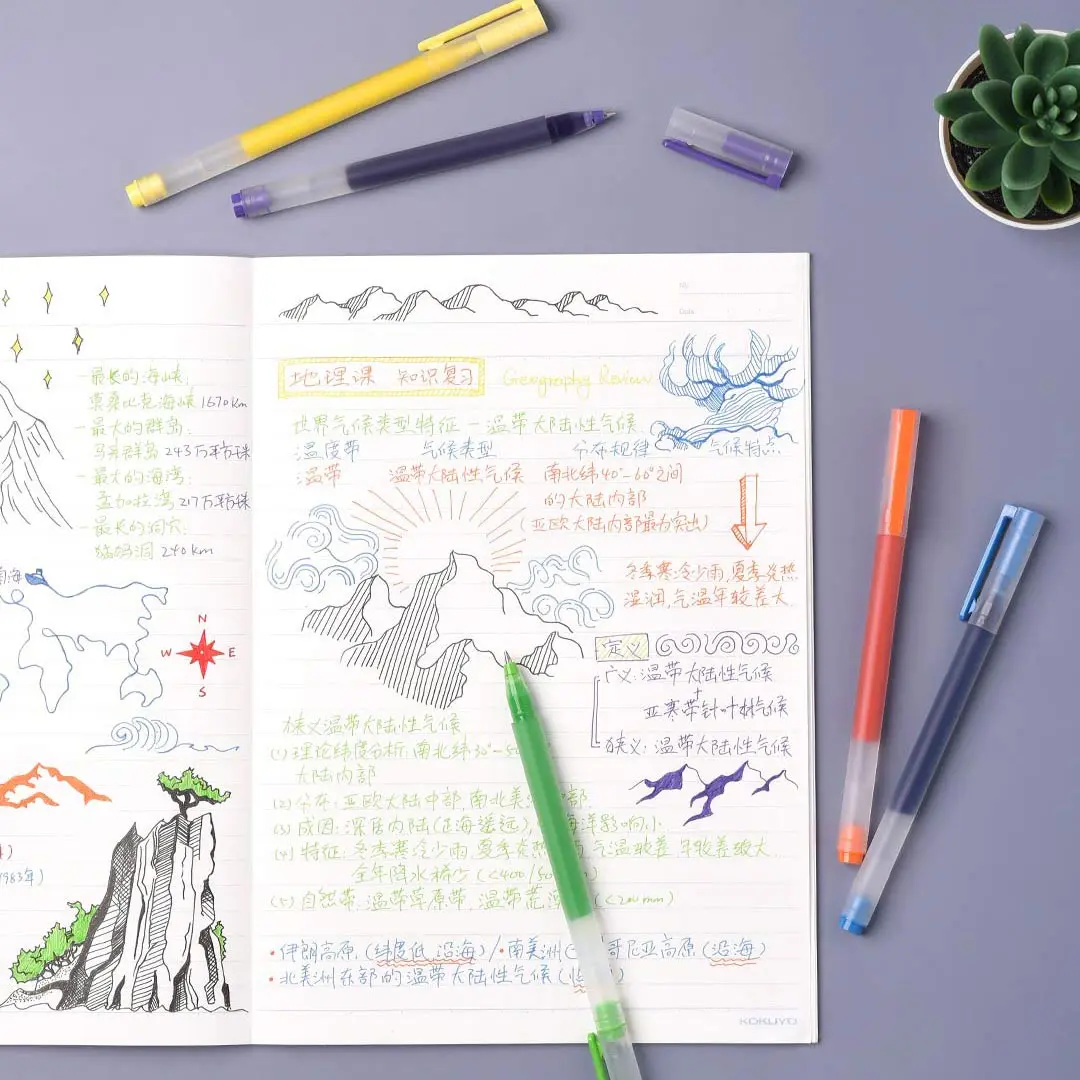 - 最长的海峡:
莫桑比克海峡 1670km
- 最大的群岛:
马来群岛 243万平方km
- 最大的海湾:
孟加拉湾 217万平方km
- 最长的洞穴:
猛犸洞 240km
南海
N
W E
S
1983年)
No.
Date
地理课 知识复习 Geography Review
世界气候类型特征 - 温带大陆性气候
温度带 气候类型 分布规律 气候特点
温带 温带大陆性气候 南北纬40°-60°之间
的大陆内部
(亚欧大陆内部最为突出)
冬季寒冷少雨,夏季炎热
湿润,气温年较差大
定义
广义:温带大陆性气候
+
亚寒带针叶林气候
狭义:温带大陆性气候
狭义温带大陆性气候
(1) 理论纬度分析:南北纬30°-5
大陆内部
(2) 分布:亚欧大陆中部,南北美 部
(3) 成因:深居内陆(距海遥远), 海洋影响小
(4) 特征:冬季寒冷少雨,夏季炎热 气温较差,年较差较大
全年降水稀少 (<400/50
(5) 自然带:温带草原带,温带荒 (<200mm)
·伊朗高原,(纬度低,沿海)/·南美洲 哥尼亚高原(沿海)
·北美洲东部的温带大陆性气候
KOKUYO